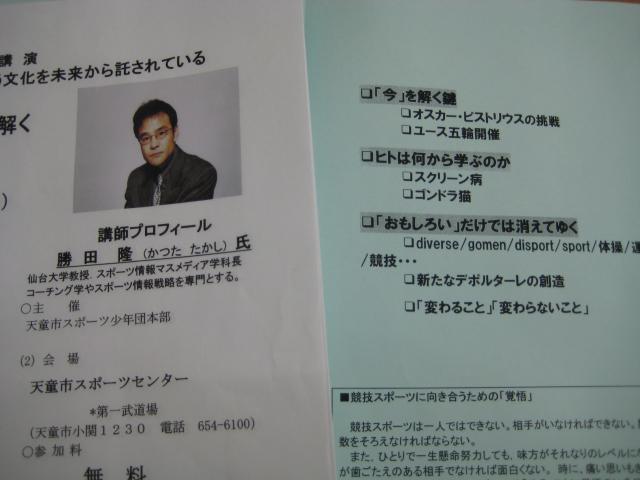 講 演
文化を未来から託されている
解く
)
講師プロフィール
勝田 隆(かつた たかし)氏
仙台大学教授．スポーツ情報マスメディア学科長
コーチング学やスポーツ情報戦略を専門とする。
○主 催
天童市スポーツ少年団本部
(2) 会 場
天童市スポーツセンター
*第一武道場
(天童市小関1230 電話 654-6100)
○参加料
無 料
❏「今」を解く鍵
❏オスカー・ピストリウスの挑戦
❏ユース五輪開催
❏ヒトは何から学ぶのか
❏スクリーン病
❏ゴンドラ猫
❏「おもしろい」だけでは消えてゆく
❏diverse/gomen/disport/sport/体操/運
/競技・・・
❏新たなデポルターレの創造
❏「変わること」「変わらないこと」
■競技スポーツに向き合うための「覚悟」
競技スポーツは一人ではできない。相手がいなければできない。
数をそろえなければならない。
また、ひとりで一生懸命努力しても、味方がそれなりのレベルに
が歯ごたえのある相手でなければ面白くない。 時に、痛い思いも